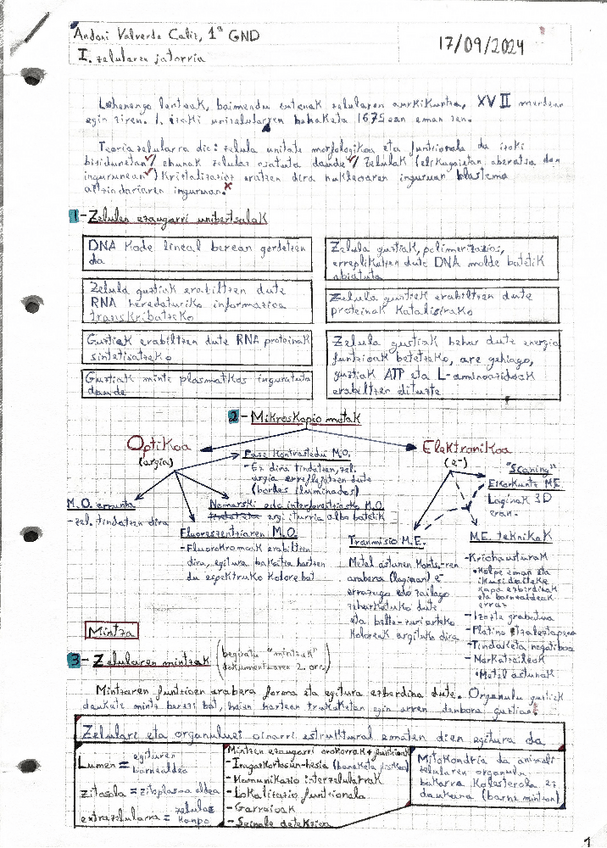 Andoni Valverde Caliz, 1º GND
17/09/2024
I. zelularen jatorria
Lehenengo lenteak, baimendu zutenak zelularen aurkikuntza, XVII mendean
egin ziren. 1. izaki unizelularren behaketa 1675ean eman zen.
Teoria zelularra dio: zelula unitate morfologikoa eta funtzionala da izaki
bizidunetan / ehunak zelulaz osatuta daude / Zelulak (elikagaietan aberatsa den
ingurunean) kristalizazioz eratzen dira nukleoaren inguruan blastema
aitzindariaren inguruan.
1-Zelulen ezaugarri unibertsalak
DNA kode lineal berean gordetzen
da
Zelula guztiak, polimerizazioz,
erreplikatzen dute DNA molde batetik
abiatuta
Zelula guztiak erabiltzen dute
RNA heredaturiko informazioa
transkribatzeko
Zelula guztiek erabiltzen dute
proteinak katalisirako
Guztiak erabiltzen dute RNA proteinak
sintetisatzeko
Zelula guztiak behar dute energia
funtzioak betetzeko, are gehiago,
guztiak ATP eta L-aminoazidoak
erabiltzen dituzte
Guztiak mintz plasmatikoz inguratuta
daude
2-Mikroskopio motak
Optikoa
(argia)
Elektronikoa
(e-)
Fase kontrastedu M.O.
-Ez dira tindatzen, zel.
argia erreflejatzen dute
(bordes iluminados)
"Scaning"
Ekorketa M.E.
-Laginak 3D
eran.
M.O. arrunta
-zel. tindatzen dira
Nomarski edo interferentziazko M.O.
argi iturria albo batetik
Fluoreszentziaren M.O.
-Fluorokromoak erabiltzen
dira, egitura bakoitza hartzen
du espektruko kolore bat
Tranmisio M.E.
Metal astunen kontz.-ren
arabera (laginan) e-
errazago edo zailago
zeharkatuko dute
eta beltz-zuri arteko
koloreak argituko dira
M.E. teknikak
-Kriohausturak
•Kolpe eman eta
ikusi daitezke
kapa ezberdinak
eta barnealdeak
erraz
-Izozte grabatua
-Platino itzaleztapena
-Tindaketa negatiboa
-Markatzaileak
•Metal astunak
Mintza
3-Zelularen mintzak (begiratu "mintzak"
dokumentuaren 2. orr.)
Mintzaren funtzioen arabera forma eta egitura ezberdina dute. Organulu guztiek
daukate mintz berezi bat, haien hartean trukaketan egin arren denbora guztian.
Zelulari eta organuluei oinarri estruktural ematen dien egitura da
Lumen = egituren
barnealdea
zitosola = zitoplasma aldea
extrazelularra = zelulaz
kanpo
Mintzen ezaugarri orokorrak + funtzioak
-Iragazkortasun-hesia
-Komunikazio interzelularrak
-Lokalizazio funtzionala
-Garraioak
-Seinale detekzioa
Mitokondria da animali
zelularen organulu
bakarra kolesterola ez
daukana (barne mintzean)
1